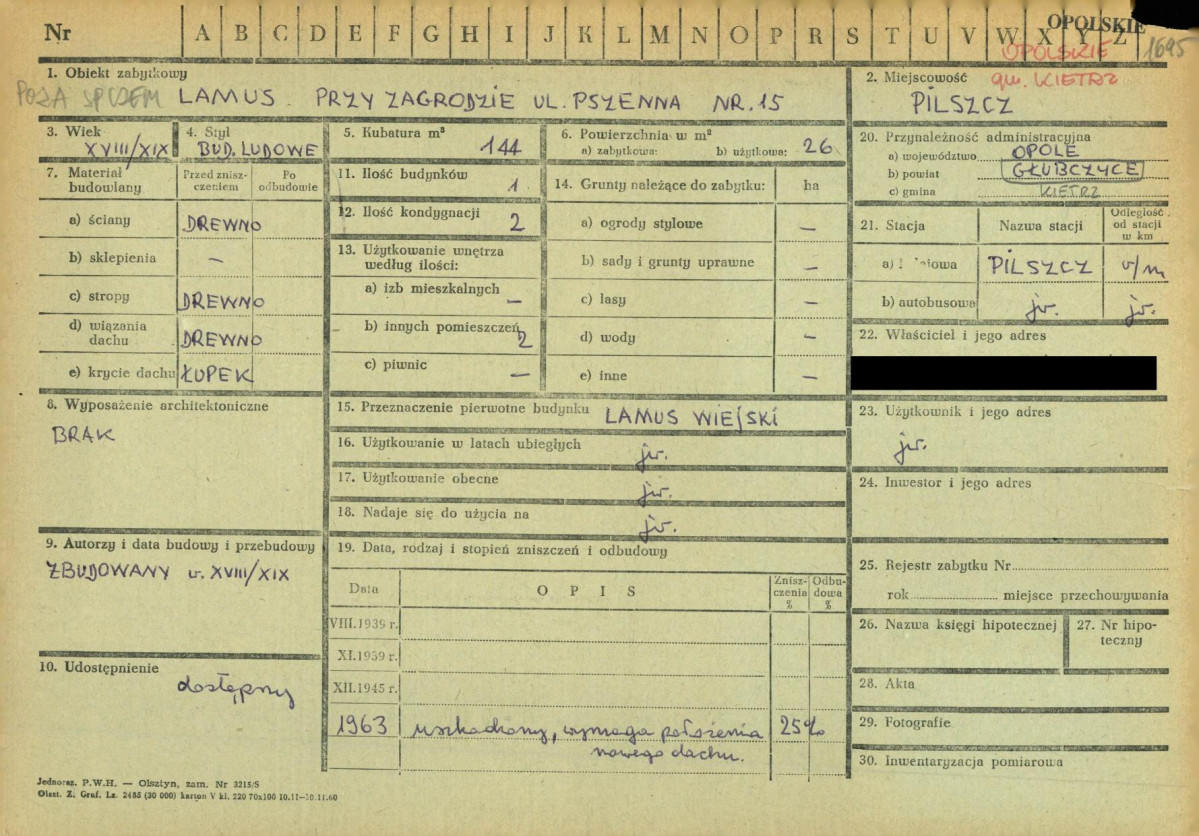 Nr A B C D E F G H I J K L M N O P R S T U V W X Y Z
OPOLSKIE
OPOLSKIE 1695
gm. KIETRZ
1. Obiekt zabytkowy
POZA SPISEM LAMUS. PRZY ZAGRODZIE UL. PSZENNA NR. 15
2. Miejscowość
PILSZCZ
3. Wiek
XVIII/XIX
4. Styl
BUD. LUDOWE
5. Kubatura m³
144
6. Powierzchnia w m²
a) zabytkowa: b) użytkowa: 26
20. Przynależność administracyjna
a) województwo OPOLE
b) powiat GŁUBCZYCE
c) gmina KIETRZ
7. Materiał budowlany
Przed zniszczeniem
Po odbudowie
a) ściany DREWNO
b) sklepienia –
c) stropy DREWNO
d) wiązania dachu DREWNO
e) krycie dachu ŁUPEK
11. Ilość budynków 1
12. Ilość kondygnacji 2
13. Użytkowanie wnętrza według ilości:
a) izb mieszkalnych –
b) innych pomieszczeń 2
c) piwnic –
14. Grunty należące do zabytku: ha
a) ogrody stylowe –
b) sady i grunty uprawne –
c) lasy –
d) wody –
e) inne –
21. Stacja Nazwa stacji Odległość od stacji w km
a) PILSZCZ v/m
b) autobusowa jw. jw.
22. Właściciel i jego adres
8. Wyposażenie architektoniczne
BRAK
15. Przeznaczenie pierwotne budynku LAMUS WIEJSKI
16. Użytkowanie w latach ubiegłych jw.
17. Użytkowanie obecne jw.
18. Nadaje się do użycia na jw.
23. Użytkownik i jego adres
jw.
24. Inwestor i jego adres
9. Autorzy i data budowy i przebudowy
ZBUDOWANY w. XVIII/XIX
19. Data, rodzaj i stopień zniszczeń i odbudowy
Data OPIS Zniszczenia % Odbudowa %
VIII.1939 r.
XI.1939 r.
XII.1945 r.
1963 uszkodzony, wymaga położenia 25%
nowego dachu.
10. Udostępnienie
dostępny
25. Rejestr zabytku Nr
rok miejsce przechowywania
26. Nazwa księgi hipotecznej
27. Nr hipoteczny
28. Akta
29. Fotografie
30. Inwentaryzacja pomiarowa
Jednoraz. P.W.H. — Olsztyn, zam. Nr 3215/S
Olszt. Z. Graf. Lz. 2485 (30 000) karton V kl. 220 70x100 10.11—30.11.60